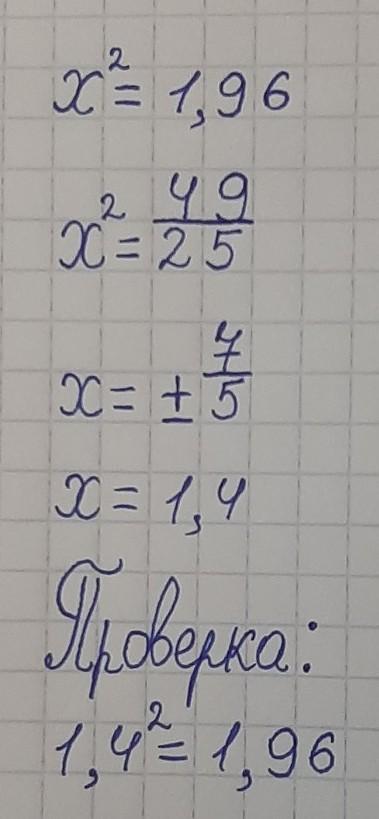 x² = 1,96
x² = 49/25
x = ± 7/5
x = 1,4
Проверка:
1,4² = 1,96